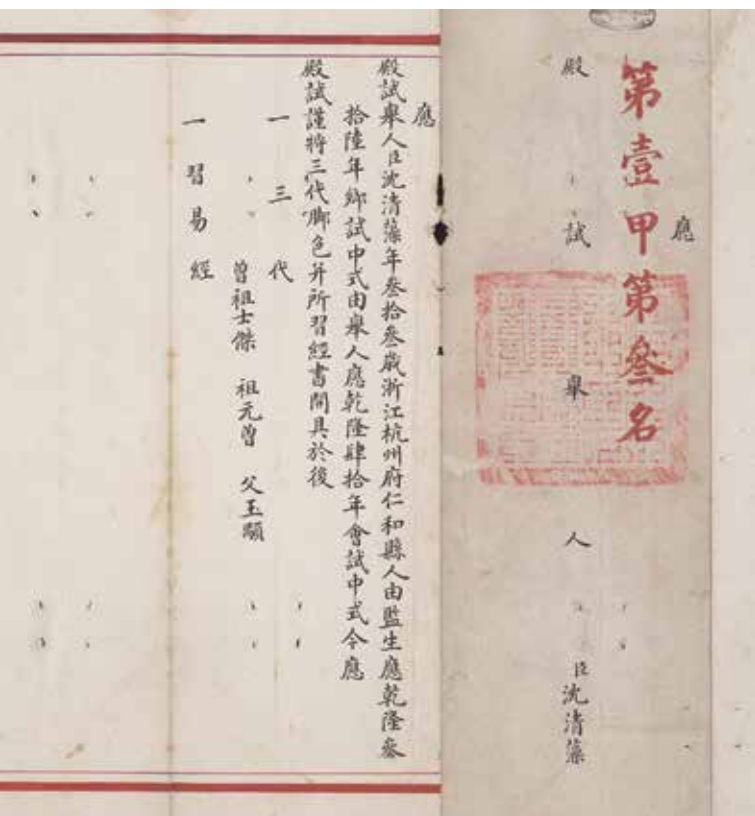 第壹甲第叄名
應
殿試舉人臣沈清藻
應
殿試舉人臣沈清藻年叄拾叄歲浙江杭州府仁和縣人由監生應乾隆叄
拾陸年鄉試中式由舉人應乾隆肆拾年會試中式今應
殿試謹將三代腳色并所習經書開具於後
一三代
曾祖士傑 祖元曾 父玉顯
一習易經